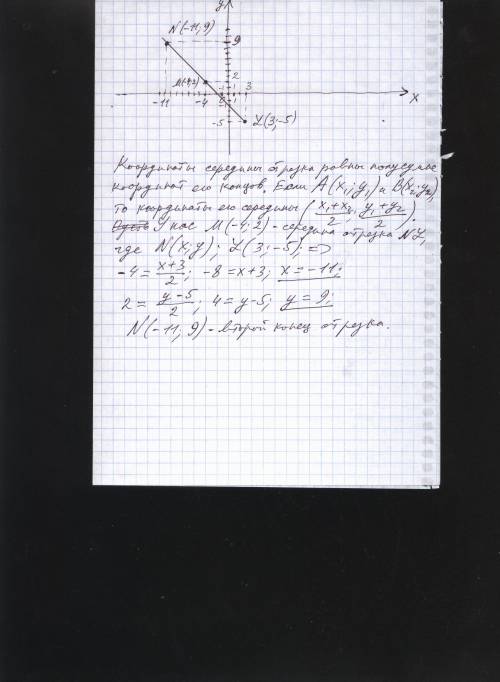 y
N(-11; 9)
9
M(-4; 2)
2
-11 -4 3 x
-5 L(3; -5)
Координаты середины отрезка равны полусумме
координат его концов. Если A(x₁; y₁) и B(x₂; y₂),
то координаты его середины ((x₁+x₂)/2; (y₁+y₂)/2);
У нас M(-4; 2) - середина отрезка NL,
где N(x; y); L(3; -5); =>
-4 = (x+3)/2; -8 = x+3; x = -11;
2 = (y-5)/2; 4 = y-5; y = 9;
N(-11; 9) - второй конец отрезка.